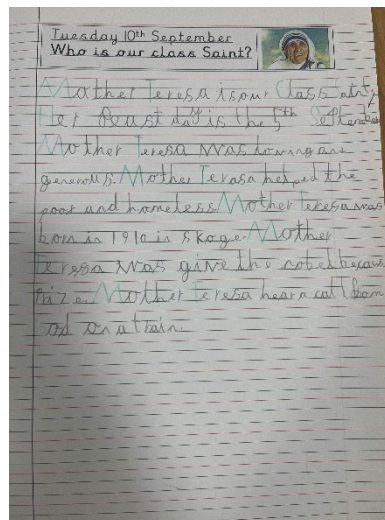 Tuesday 10th September
Who is our class Saint?
Mother Teresa is our Class Saint,
Her feast day is the 5th September
Mother Teresa was loving and
generous. Mother Teresa helped the
poor and homeless. Mother Teresa was
born in 1910 in Skoge. Mother
Teresa was give the nobel
Mother Teresa hear a call from
God on a Train.